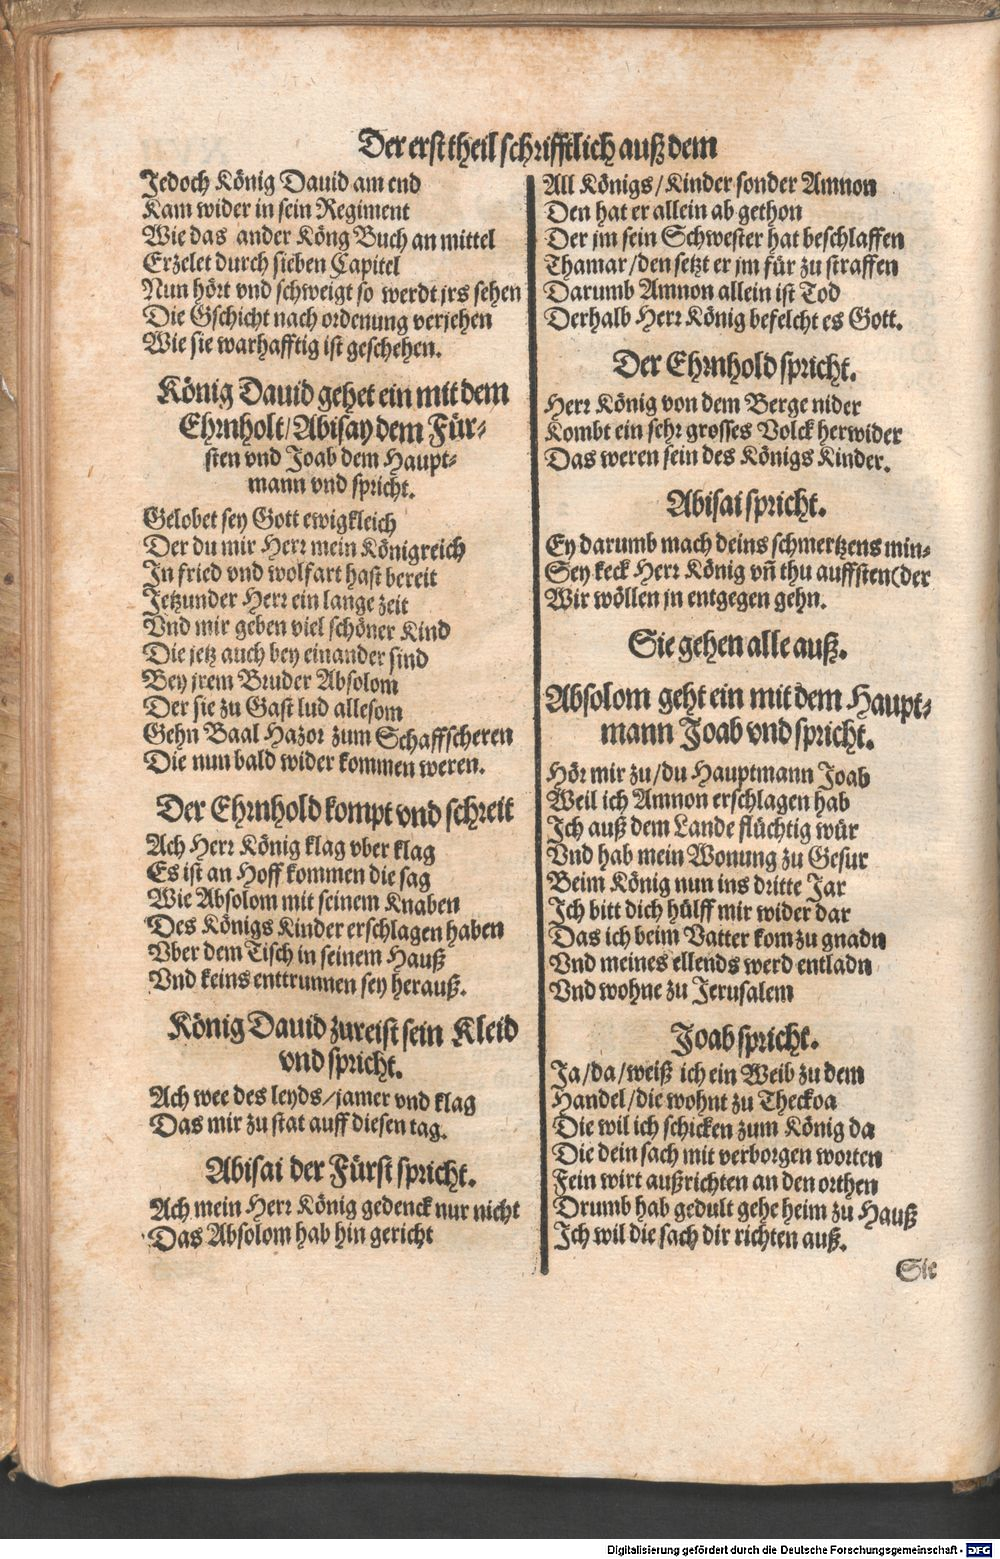 Der erst theil schrifftlich auß dem
Jedoch König Dauid am end
Kam wider in sein Regiment
Wie das ander Köng Buch an mittel
Erzelet durch sieben Capitel
Nun hört vnd schweigt so werdt jrs sehen
Die Gschicht nach ordenung verjehen
Wie sie warhafftig ist geschehen.
König Dauid gehet ein mit dem
Ehrnholt/Abisay dem Für-
sten vnd Joab dem Haupt-
mann vnd spricht.
Gelobet sey Gott ewigkleich
Der du mir Herr mein Königreich
In fried vnd wolfart hast bereit
Jetzunder Herr ein lange zeit
Vnd mir geben viel schöner Kind
Die jetz auch bey einander sind
Bey jrem Bruder Absolom
Der sie zu Gast lud allesom
Gehn Baal Hazor zum Schaffscheren
Die nun bald wider kommen weren.
Der Ehrnhold kompt vnd schreit
Ach Herr König klag vber klag
Es ist an Hoff kommen die sag
Wie Absolom mit seinem Knaben
Des Königs Kinder erschlagen haben
Vber dem Tisch in seinem Hauß
Vnd keins enttrunnen sey herauß.
König Dauid zureist sein Kleid
vnd spricht.
Ach wee des leyds/jamer vnd klag
Das mir zu stat auff diesen tag.
Abisai der Fürst spricht.
Ach mein Herr König gedenck nur nicht
Das Absolom hab hin gericht
All Königs/Kinder sonder Amnon
Den hat er allein ab gethon
Der jm sein Schwester hat beschlaffen
Thamar/den setzt er jm für zu straffen
Darumb Amnon allein ist Tod
Derhalb Herr König befelcht es Gott.
Der Ehrnhold spricht.
Herr König von dem Berge nider
Kombt ein sehr grosses Volck herwider
Das weren sein des Königs Kinder.
Abisai spricht.
Ey darumb mach deins schmertzens min-
Sey keck Herr König vn̄ thu auffsten(der
Wir wöllen jn entgegen gehn.
Sie gehen alle auß.
Absolom geht ein mit dem Haupt-
mann Joab vnd spricht.
Hör mir zu/du Hauptmann Joab
Weil ich Amnon erschlagen hab
Ich auß dem Lande flüchtig wür
Vnd hab mein Wonung zu Gesur
Beim König nun ins dritte Jar
Ich bitt dich hülff mir wider dar
Das ich beim Vatter kom zu gnadn
Vnd meines ellends werd entladn
Vnd wohne zu Jerusalem
Joab spricht.
Ja/da/weiß ich ein Weib zu dem
Handel/die wohnt zu Theckoa
Die wil ich schicken zum König da
Die dein sach mit verborgen worten
Fein wirt außrichten an den orthen
Drumb hab gedult gehe heim zu Hauß
Ich wil die sach dir richten auß.
Sie
Digitalisierung gefördert durch die Deutsche Forschungsgemeinschaft - DFG